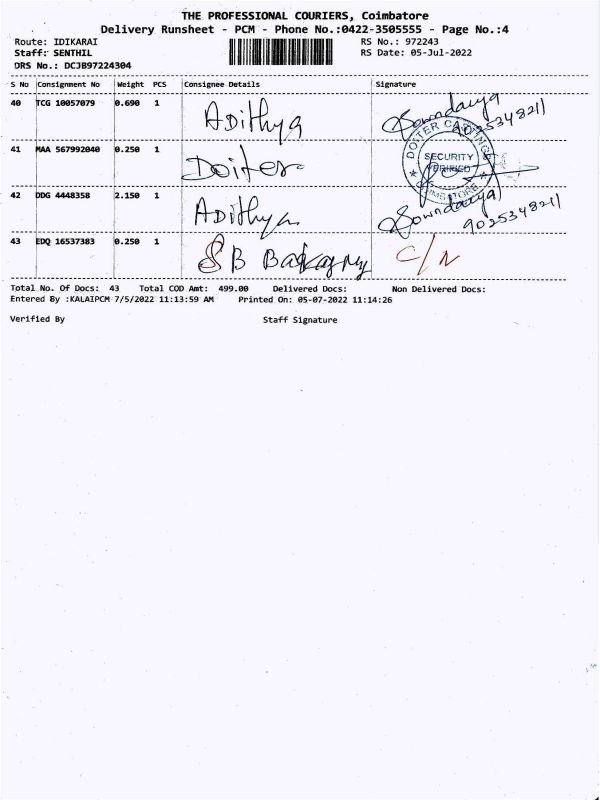 THE PROFESSIONAL COURIERS, Coimbatore
Delivery Runsheet - PCM - Phone No.:0422-3505555 - Page No.:4
Route: IDIKARAI RS No.: 972243
Staff: SENTHIL RS Date: 05-Jul-2022
DRS No.: DCJB97224304
S No Consignment No Weight PCS Consignee Details Signature
40 TCG 10057079 0.690 1 Adithya Sowndarya
9025348211
41 MAA 567992040 0.250 1 Doiter DOITER CASTINGS COIMBATORE
SECURITY
VERIFIED
42 DDG 4448358 2.150 1 Adithya Sowndarya
9025348211
43 EDQ 16537383 0.250 1 SB C/N
Total No. Of Docs: 43 Total COD Amt: 499.00 Delivered Docs: Non Delivered Docs:
Entered By :KALAIPCM 7/5/2022 11:13:59 AM Printed On: 05-07-2022 11:14:26
Verified By Staff Signature